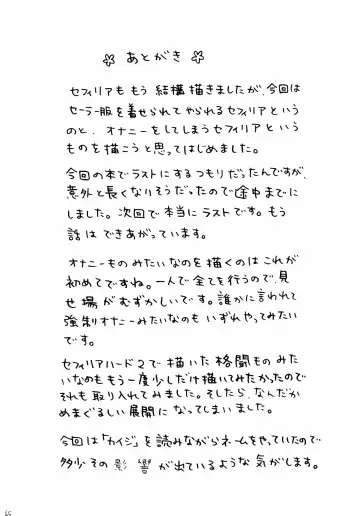 ☆ あとがき ☆
セフィリアも もう 結構 描きましたが、今回は
セーラー服を着せられてやられるセフィリアという
のと、オナニーをしてしまうセフィリアという
ものを描こうと思ってはじめました。
今回の本でラストにするつもりだったんですが、
意外と長くなりそうだったので途中までに
しました。次回で本当にラストです。もう
話は できあがっています。
オナニーものみたいなのを描くのは これが
初めてですね。一人で全てを行うので、見
せ場が むずかしいです。誰かに言われて
強制オナニーみたいなのも いずれやってみたい
です。
セフィリアハード2で描いた格闘ものみた
いなのも もう一度少しだけ描いてみたかったので
それも取り入れてみました。そしたら、なんだか
めまぐるしい展開に なってしまいました。
今回は「カイジ」を読みながらネームをやっていたので
多少その影響が出ているような気がします。